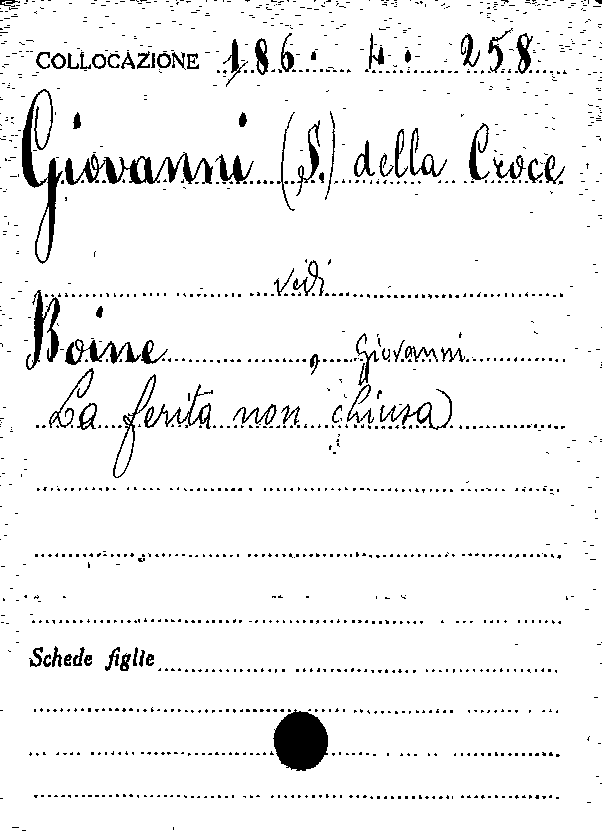 COLLOCAZIONE 186. H. 258
Giovanni (S.) della Croce
vedi
Boine, Giovanni
La ferita non chiusa
Schede figlie